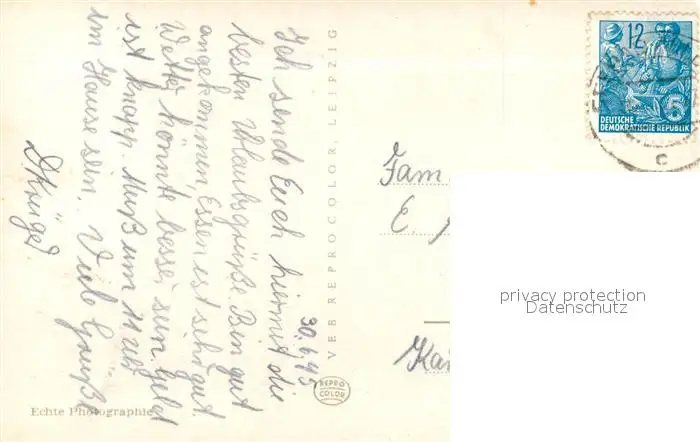 30. 6.
Ich sende Euch hiermit die
besten Urlaubsgrüße. Bin gut
angekommen, Essen ist sehr gut.
Wetter könnte besser sein. Geld
ist knapp. Muß um 11 Uhr
im Hause sein. Viele Grüße
VEB REPROCOLOR, LEIPZIG
REPRO
COLOR
Echte Photographie
12
5
DEUTSCHE
DEMOKRATISCHE REPUBLIK
c
Fam.
E.
privacy protection
Datenschutz